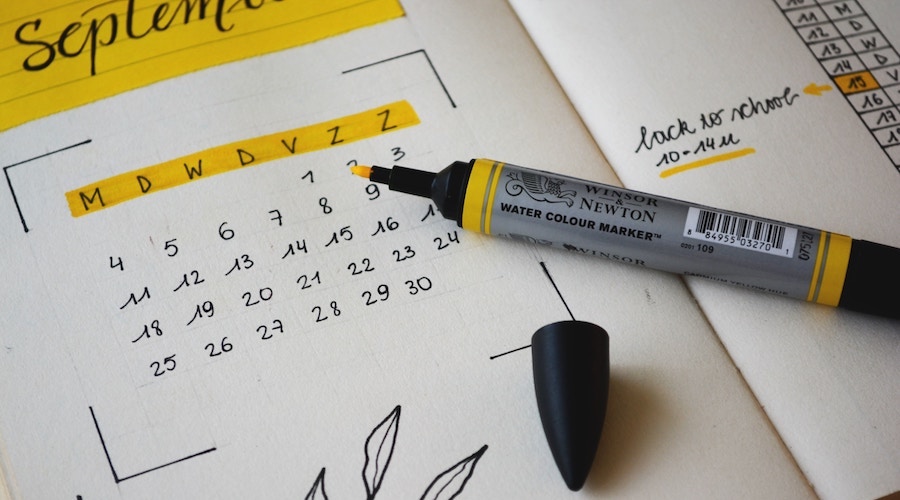 Septembe
M D W D V Z Z
1 2 3
4 5 6 7 8 9
11 12 13 14 15 16
18 19 20 21 22 23 24
25 26 27 28 29 30
back to school
10-14u
11 M
12 D
13 W
14 D
15 V
16
17
WINSOR
&
NEWTON
WATER COLOUR MARKER™
8 84955 03270 1
0201 109
WINSOR
CADMIUM YELLOW HUE